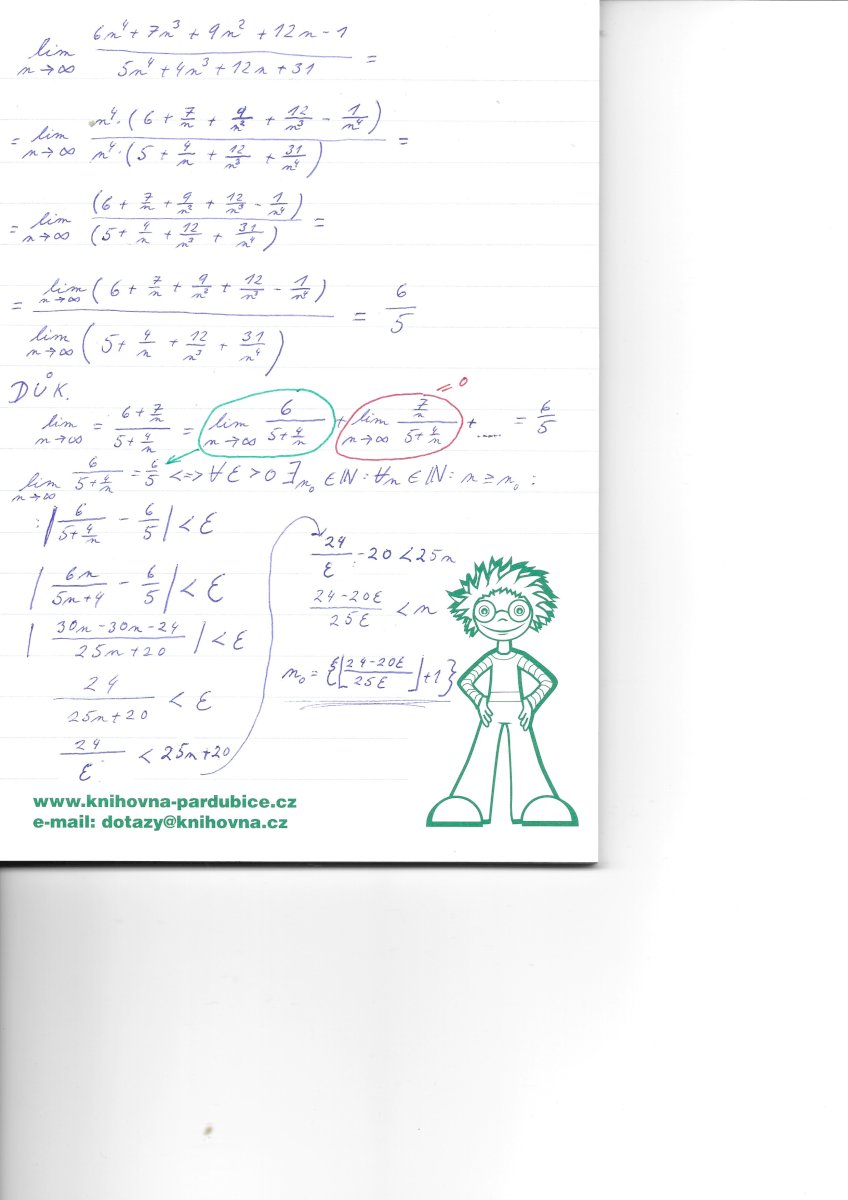 lim n→∞ (6n⁴ + 7n³ + 9n² + 12n - 1) / (5n⁴ + 4n³ + 12n + 31) =
= lim n→∞ n⁴·(6 + 7/n + 9/n² + 12/n³ - 1/n⁴) / n⁴·(5 + 4/n + 12/n³ + 31/n⁴) =
= lim n→∞ (6 + 7/n + 9/n² + 12/n³ - 1/n⁴) / (5 + 4/n + 12/n³ + 31/n⁴) =
= lim n→∞ (6 + 7/n + 9/n² + 12/n³ - 1/n⁴) / lim n→∞ (5 + 4/n + 12/n³ + 31/n⁴) = 6/5
DŮK.
lim n→∞ = (6 + 7/n) / (5 + 4/n) = lim n→∞ 6 / (5 + 4/n) + lim n→∞ (7/n) / (5 + 4/n) + .... = 6/5
= 0
lim n→∞ 6 / (5 + 4/n) = 6/5 <=> ∀ε > 0 ∃n₀ ∈ ℕ: ∀n ∈ ℕ: n ≥ n₀ :
: |6 / (5 + 4/n) - 6/5| < ε
|6n / (5n+4) - 6/5| < ε
|(30n - 30n - 24) / (25n + 20)| < ε
24 / (25n + 20) < ε
24/ε < 25n + 20
24/ε - 20 < 25n
(24 - 20ε) / 25ε < n
n₀ = {⌊(24 - 20ε) / 25ε⌋ + 1}
www.knihovna-pardubice.cz
e-mail: dotazy@knihovna.cz